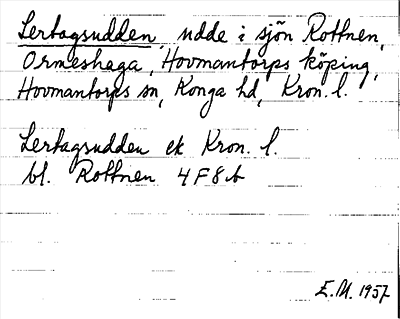 Lertagsudden, udde i sjön Rottnen,
Ormeshaga, Hovmantorps köping,
Hovmantorps sn, Konga hd, Kron. l.
Lertagsudden ek Kron. l.
bl. Rottnen 4F8b
E.M. 1957